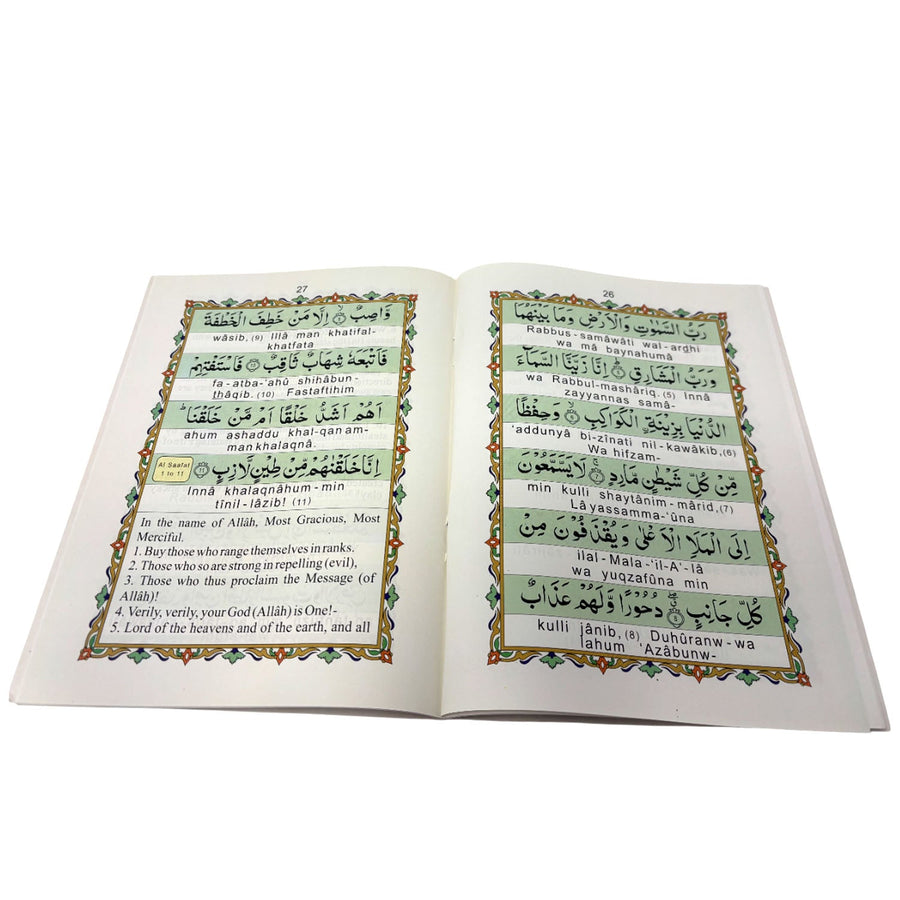 26
رَبُّ السَّمٰوٰتِ وَالْاَرْضِ وَمَا بَيْنَهُمَا
Rabbus-samâwâti wal-ardhi
wa mâ baynahumâ
وَرَبُّ الْمَشَارِقِ ۝٥ اِنَّا زَيَّنَّا السَّمَآءَ
wa Rabbul-mashâriq. (5) Innâ
zayyannas samâ-
الدُّنْيَا بِزِيْنَةِ ۨالْكَوَاكِبِ ۝٦ وَحِفْظًا
'addunyâ bi-zînati nil-kawâkib,(6)
Wa hifzam-
مِّنْ كُلِّ شَيْطٰنٍ مَّارِدٍ ۝٧ لَا يَسَّمَّعُوْنَ
min kulli shaytânim-mârid,(7)
Lâ yassamma-'ûna
اِلَى الْمَلَاِ الْاَعْلٰى وَيُقْذَفُوْنَ مِنْ
ilal-Mala-'il-A'-lâ
wa yuqzafûna min
كُلِّ جَانِبٍ ۝٨ دُحُوْرًا وَّلَهُمْ عَذَابٌ
kulli jânib, (8) Duhûranw-wa
lahum 'Azâbunw-
27
وَّاصِبٌ ۝٩ اِلَّا مَنْ خَطِفَ الْخَطْفَةَ
wâsib, (9) Illâ man khatifal-
khatfata
فَاَتْبَعَهٗ شِهَابٌ ثَاقِبٌ ۝١٠ فَاسْتَفْتِهِمْ
fa-atba-'ahû shihâbun-
thâqib. (10) Fastaftihim
اَهُمْ اَشَدُّ خَلْقًا اَمْ مَّنْ خَلَقْنَا ؕ
ahum ashaddu khal-qan am-
man khalaqnâ.
اِنَّا خَلَقْنٰهُمْ مِّنْ طِيْنٍ لَّازِبٍ ۝١١
Al Saafat
1 to 11
Innâ khalaqnâhum-min
tînil-lâzib! (11)
In the name of Allâh, Most Gracious, Most
Merciful.
1. Buy those who range themselves in ranks.
2. Those who so are strong in repelling (evil),
3. Those who thus proclaim the Message (of
Allâh)!
4. Verily, verily, your God (Allâh) is One!-
5. Lord of the heavens and of the earth, and all